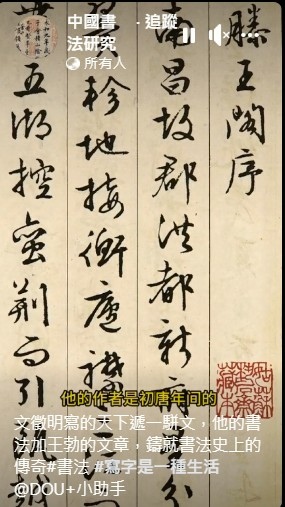 中國書 · 追蹤
法研究
所有人
滕王閣序
南昌故郡洪都新府
分
軫地接衡廬襟
五湖控蠻荊而引
越
他的作者是初唐年间的
文徵明寫的天下遞一駢文，他的書
法加王勃的文章，鑄就書法史上的
傳奇#書法 #寫字是一種生活
@DOU+小助手